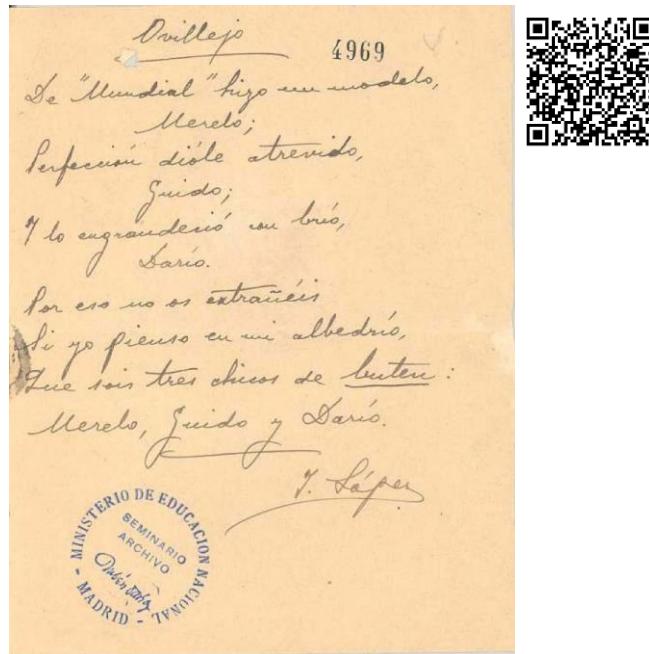 Ovillejo
4969
De "Mundial" hizo un modelo,
Merelo;
Perfección dióle atrevido,
Guido;
Y lo engrandeció con brío,
Darío.
Por eso no os extrañéis
Si yo pienso en mi albedrío,
Que sois tres chicos de buten:
Merelo, Guido y Darío.
J. López
MINISTERIO DE EDUCACION NACIONAL
- MADRID -
SEMINARIO
ARCHIVO
Rubén Darío